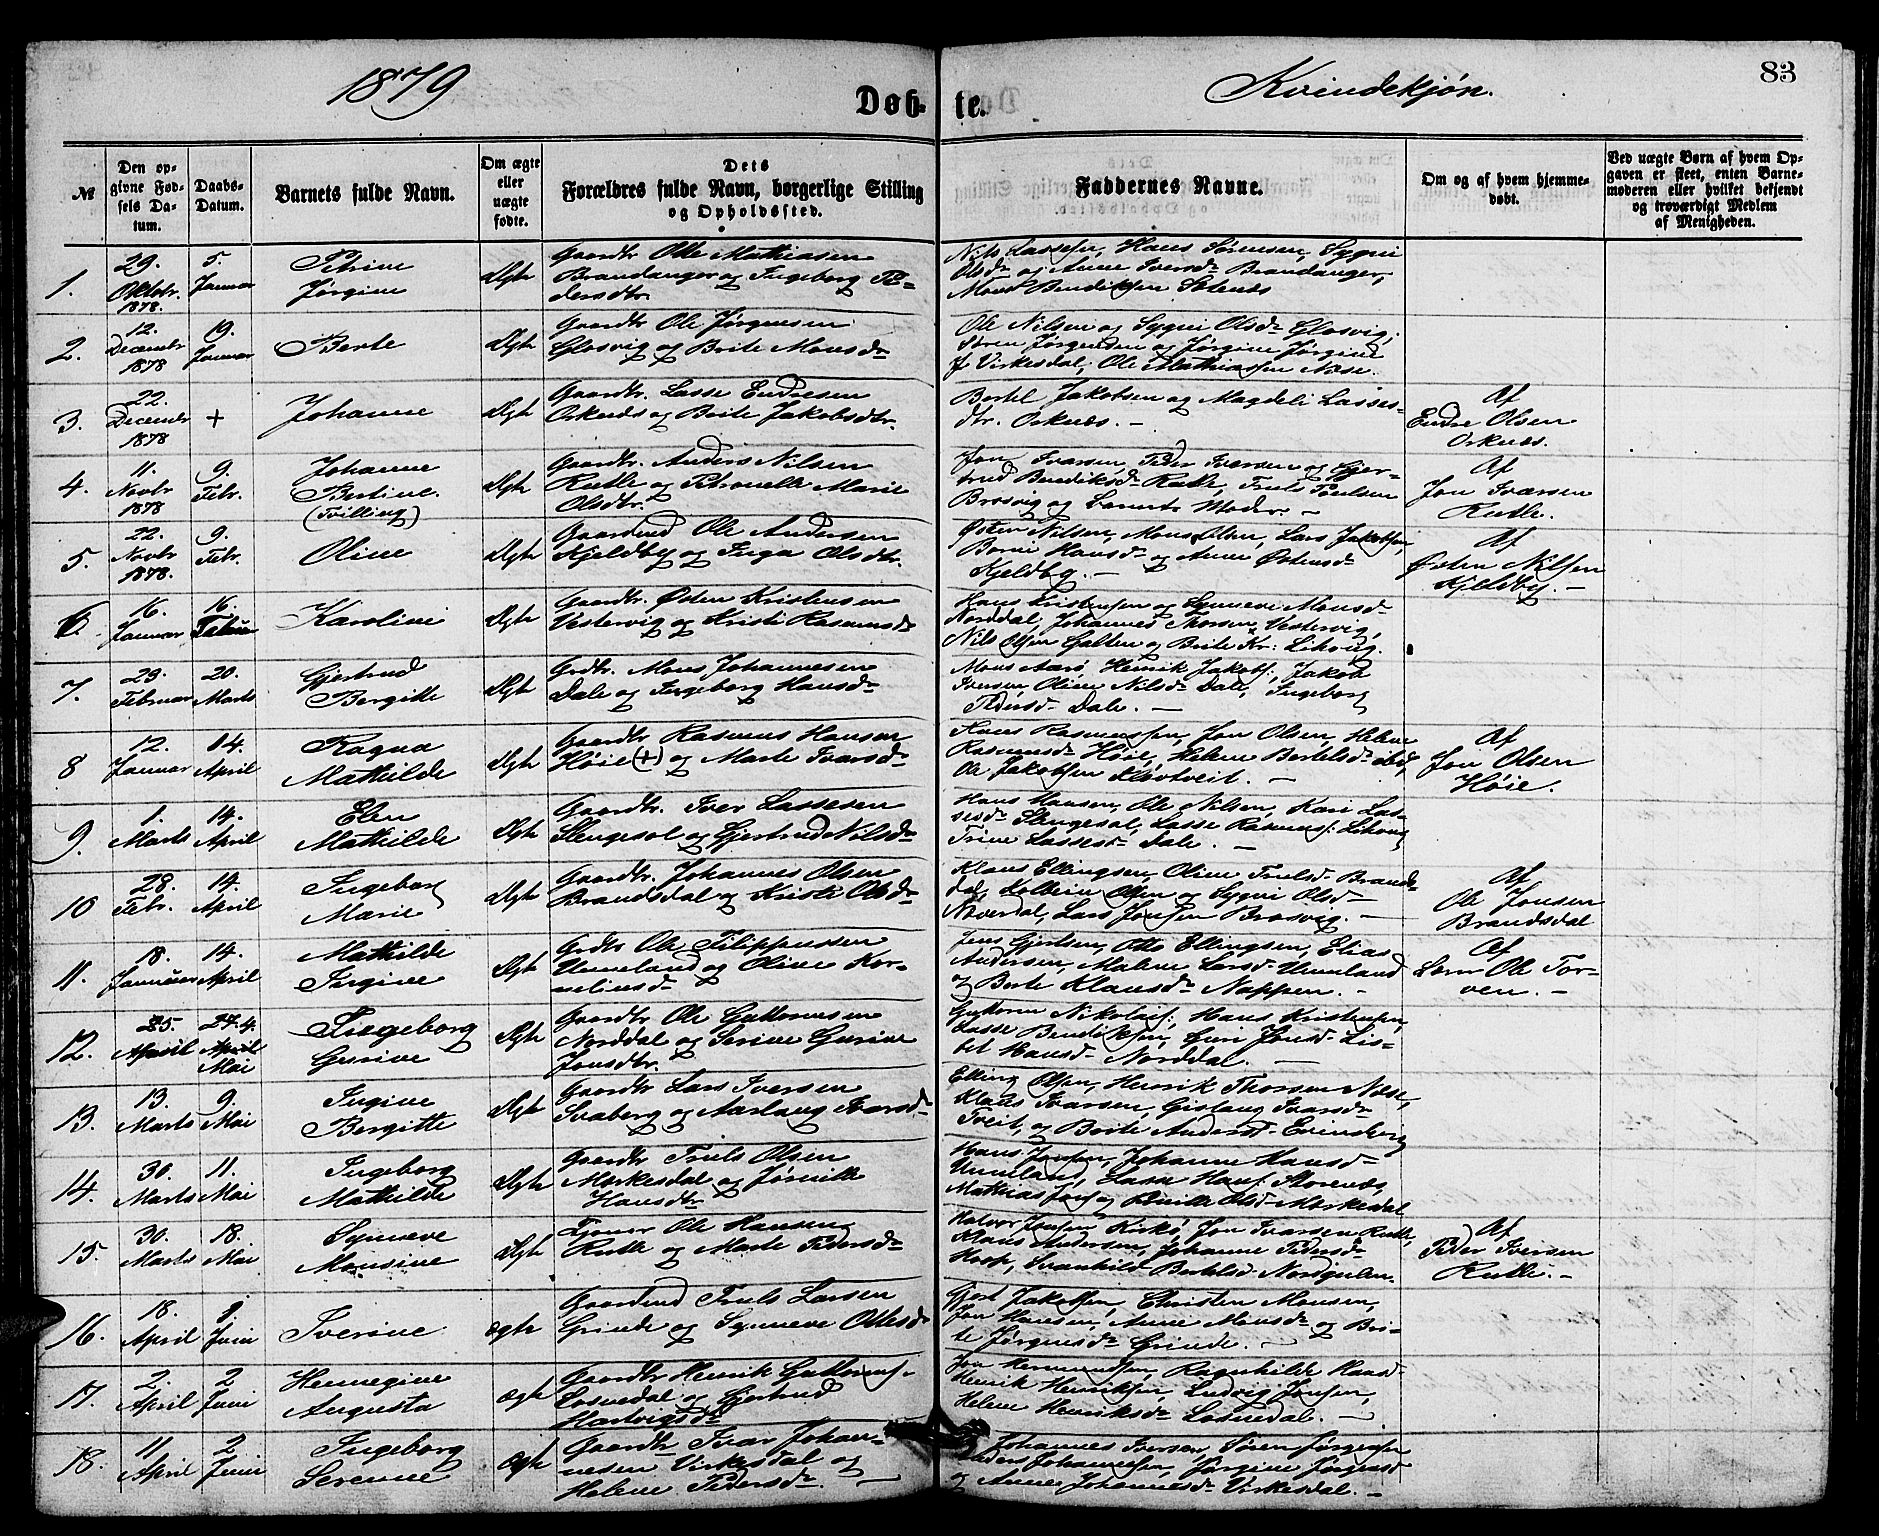 1879
Døb-
te.
Kvindekjøn.
83
№
Den op-
givne Fød-
sels Da-
tum.
Daabs-
Datum.
Barnets fulde Navn.
Om ægte
eller
uægte
fødte.
Dets
Forældres fulde Navn, borgerlige Stilling
og Opholdssted.
Faddernes Navne.
Om og af hvem hjemme-
døbt.
Ved uægte Børn af hvem Op-
gaven er skeet, enten Barne-
moderen eller hvilket bekjendt
og troværdigt Medlem
af Menigheden.
1.
29.
Oktobr.
1878.
5.
Januar
Petrine
Jørgine
Ægte
Gaardbr Ole Mathiasen
Brandanger og Ingeborg Pe-
dersdtr.
Nils Lassesen, Hans Sørensen, Sygni
Olsdr og Anne Iversdr Brandanger,
Mons Bendiksen
2.
12.
Decembr
1878
19.
Januar
Berte
Ægte
Gaardbr Ole Jørgensen
Glosvig og Brite Monsdr
Ole Nilsen og Sygni Olsdr Glosvig,
Søren Jørgensen og Jørgine Jørgine
f Virkesdal, Ole Mathiassen Næse.
3.
22.
Decembr
1878
+
Johanne
Ægte
Gaardbr. Lasse Endresen
Oknes og Brite Jakobsdtr.
Bertel Jakobsen og Magdeli Lasses-
dtr. Osknæs. —
Af
Endre Olsen
Osknæs.
4.
11.
Novbr
1878
9.
Febr.
Johanne
Bertine.
(Tvilling)
Ægte
Gaardbr. Anders Nilsen
Rutle og Petronelle Marie
Olsdtr.
Jon Ivarsen, Peder Iversen og Gjer-
trud Bendiksdr Rutle, Truls Poulsen
Brosvig og Barnets Moder. —
Af
Jon Ivarsen
Rutle.
5.
22.
Novbr
1878.
9.
Febr.
Oline
Ægte
Gaardmd Ole Andersen
Kjeldby og Inga Olsdtr.
Østen Nilsen, Mons Olsen, Lars Jakobsen
Hansdr og Anne Østensdr
Kjeldby. —
Af
Østen Nilsen
Kjeldby. —
6.
16.
Januar
16.
Karoline
Ægte
Gaardbr. Østen Kristensen
Vestervig og Kristi Rasmusdr
Hans Kristensen og Synneve Monsd-
Norddal, Johannes Thorsen Vestervig,
Nils Olsen Galten og Brite Kr: Lihvig.
7.
29.
Februar
20.
Marts
Gjertrud
Bergitte
Ægte
Grdbr. Mons Johannesen
Dale og Ingeborg Hansdr
Mons Aarø, Henrik Jakobs., Jakob
Iversen, Oline Nilsdr Dale, Ingeborg
Pedersdr Dale. —
8
12.
Januar
14.
April
Ragna
Mathilde
Ægte
Gaardbr Rasmus Hansen
Høie (+) og Marte Ivarsdr
Hans Rasmussen, Jon Olsen, Helene
Rasmusdr Høie, Helene Bertelsdr ibid,
Ole Jakobsen Kløvtveit. —
Af
Jon Olsen
Høie.
9.
1.
Marts
14.
April
Elen
Mathilde
Ægte
Gaardbr. Iver Lassesen
Slengesol og Gjertrud Nilsdr
Hans Hansen, Ole Nilsen, Kari Las-
sesdr Slengesol, Lasse Rasmuss. Lihvig
Trine Lassesdr Dale. —
10
28.
Febr.
14.
April
Ingeborg
Marie
Ægte
Gaardbr. Johannes Olsen
Brandsdal og Kristi Olsdr
Klaus Ellingsen, Oline Trulsd- Brands-
dal, Kolbein Olsen og Sygni Olsd-
Nøverdal, Lars Jonsen Brosvig. —
Af
Ole Jonsen
Brandsdal
11.
18.
Januar
14.
April
Mathilde
Ingine
Ægte
Grdbr Ole Filippussen
Unneland og Oline Kor-
neliusd-
Jens Gjertsen, Otto Ellingsen, Elias
Andersen, Malene Larsd- Unneland
og Berte Klausdr Nappen. —
Af
Ole Tor-
ven. —
12.
25.
April
27. 4.
April
Mai
Ingeborg
Gurine
Ægte
Gaardbr Ole Guttormsen
Norddal og Serine Gurine
Jonsdtr.
Guttorm Nikolais, Hans Kristensen,
Lasse Bendiksen, Guri Jonsd- Lis-
bet Hansd- Norddal. —
13.
13.
Marts
9.
Mai
Ingine
Bergitte
Ægte
Gaardbr Lars Iversen
Svaberg og Aarlaug Ivarsd-
Elling Olsen, Henrik Thorsen Næse,
Klaus Ivarsen, Gislaug Ivarsdr
Tveit, og Berte Andersd-
14.
30.
Marts
11.
Mai
Ingeborg
Mathilde
Ægte
Gaardbr Truls Olsen
Mørkesdal og Jørnille
Hansdtr
Hans Jonsen, Johanne Hansd-
Unneland, Lasse Hans. Storenæs,
Mathias Jons. og Olsd- Mørkesdal
15.
30.
Marts
18.
Mai
Synneve
Monsine
Ægte
Ole Hansen
Rutle og Marte Pedersdr
Halvor Jonsen Kirkø, Jon Ivarsen Rutle,
Klaus Andersen, Johanne Pedersdr
Svanhild Bertelsd- Nordgulen.
Af
Peder Iversen
Rutle. —
16.
18.
April
1
Juni
Iverine
ægte
Gaardmd Truls Larsen
Grinde og Synneve Ottesdr
Gjert Jakobsen, Christen Monsen,
Jon Hansen, Anne Monsdr og Bri-
te Jørgensdr Grinde. —
17.
2.
April
2
Juni
Hennegine
Augusta
ægte
Gaardbr Henrik Guttorms.
Losnedal og Gjertrud
Hartvigsdr
Jon Hermundsen, Ragnhilde Hansd-
Henrik Henriksen, Ludvig Jonsen,
Helene Henriksdr Losnedal. —
18.
11
April
2
Juni
Ingeborg
Serenne
ægte
Gaardbr Ivar Johan-
nesen Virkesdal og
Helene Pedersdr. —
Johannes Iversen, Søren Jørgensen
Anders Johannessen, Jørgine Jørgensd
og Anne Johannesdr Virkesdal. —